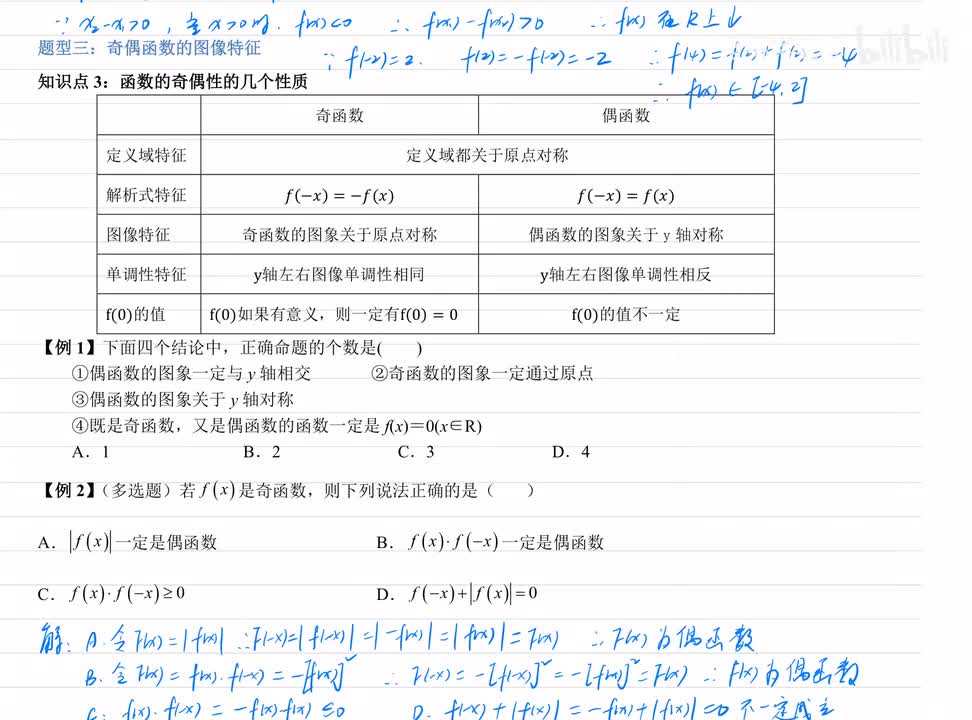 ∵ x₂-x₁>0，当x>0时，f(x)<0 ∴ f(x₁)-f(x₂)>0 ∴ f(x) 在R上↓
题型三：奇偶函数的图像特征
∵ f(-2)=2. f(2)=-f(-2)=-2 ∴ f(4)=f(2)+f(2)=-4
bilibili
知识点 3：函数的奇偶性的几个性质
∴ f(x) ∈ [-4, 2]
奇函数 偶函数
定义域特征 定义域都关于原点对称
解析式特征 f(−x) = −f(x) f(−x) = f(x)
图像特征 奇函数的图象关于原点对称 偶函数的图象关于 y 轴对称
单调性特征 y轴左右图像单调性相同 y轴左右图像单调性相反
f(0)的值 f(0)如果有意义，则一定有f(0) = 0 f(0)的值不一定
【例 1】下面四个结论中，正确命题的个数是( )
①偶函数的图象一定与 y 轴相交 ②奇函数的图象一定通过原点
③偶函数的图象关于 y 轴对称
④既是奇函数，又是偶函数的函数一定是 f(x)＝0(x∈R)
A．1 B．2 C．3 D．4
【例 2】（多选题）若 f(x) 是奇函数，则下列说法正确的是（ ）
A． |f(x)| 一定是偶函数 B． f(x)·f(−x) 一定是偶函数
C． f(x)·f(−x) ≥ 0 D． f(−x)+|f(x)| = 0
解：A.令F(x)=|f(x)| ∴F(-x)=|f(-x)|=|-f(x)|=|f(x)|=F(x) ∴F(x)为偶函数
B.令F(x)=f(x)·f(-x)=-[f(x)]² ∴F(-x)=-[f(-x)]²=-[f(x)]²=F(x) ∴F(x)为偶函数
C. f(x)·f(-x)=-f(x)·f(x)≤0 D. f(-x)+|f(x)|=-f(x)+|f(x)|=0 不一定成立